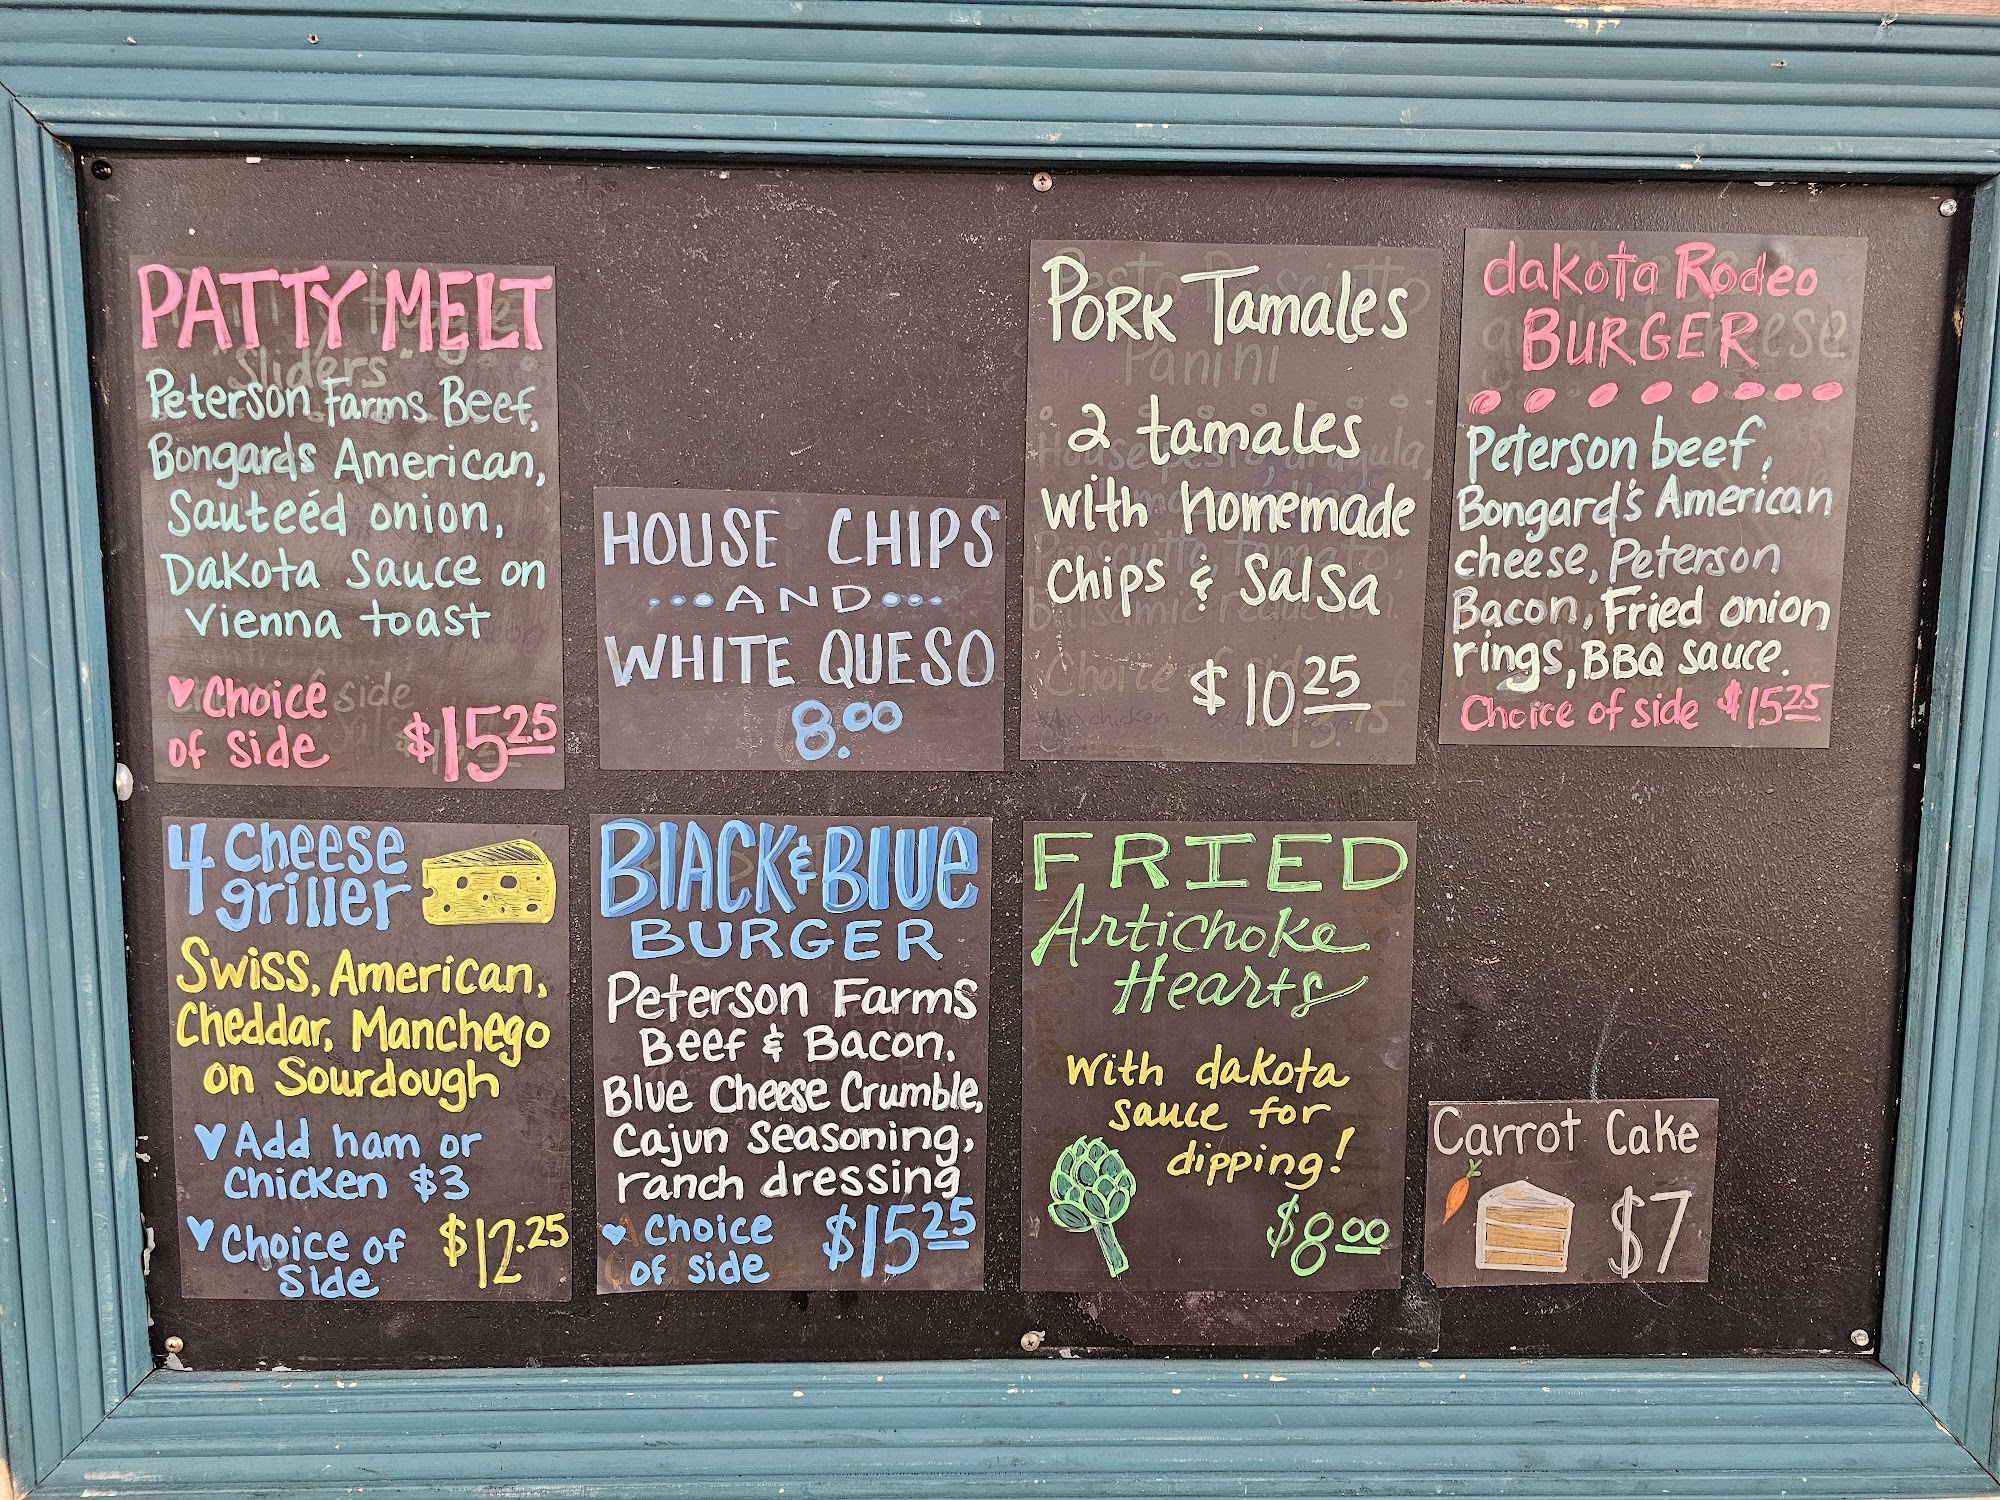 PATTY MELT
Peterson Farms Beef,
Bongards American,
Sauteéd onion,
Dakota Sauce on
Vienna toast
♥ Choice
of side $15.25
HOUSE CHIPS
AND
WHITE QUESO
8.00
PORK Tamales
2 tamales
with Homemade
Chips & Salsa
$10.25
dakota Rodeo
BURGER
Peterson beef,
Bongard's American
cheese, Peterson
Bacon, Fried onion
rings, BBQ sauce.
Choice of side $15.25
4 Cheese
griller
Swiss, American,
Cheddar, Manchego
on Sourdough
♥ Add ham or
chicken $3
♥ Choice of
side $12.25
BLACK & BLUE
BURGER
Peterson Farms
Beef & Bacon,
Blue Cheese Crumble,
Cajun seasoning,
ranch dressing
♥ Choice
of side $15.25
FRIED
Artichoke
Hearts
with dakota
sauce for
dipping!
$8.00
Carrot Cake
$7